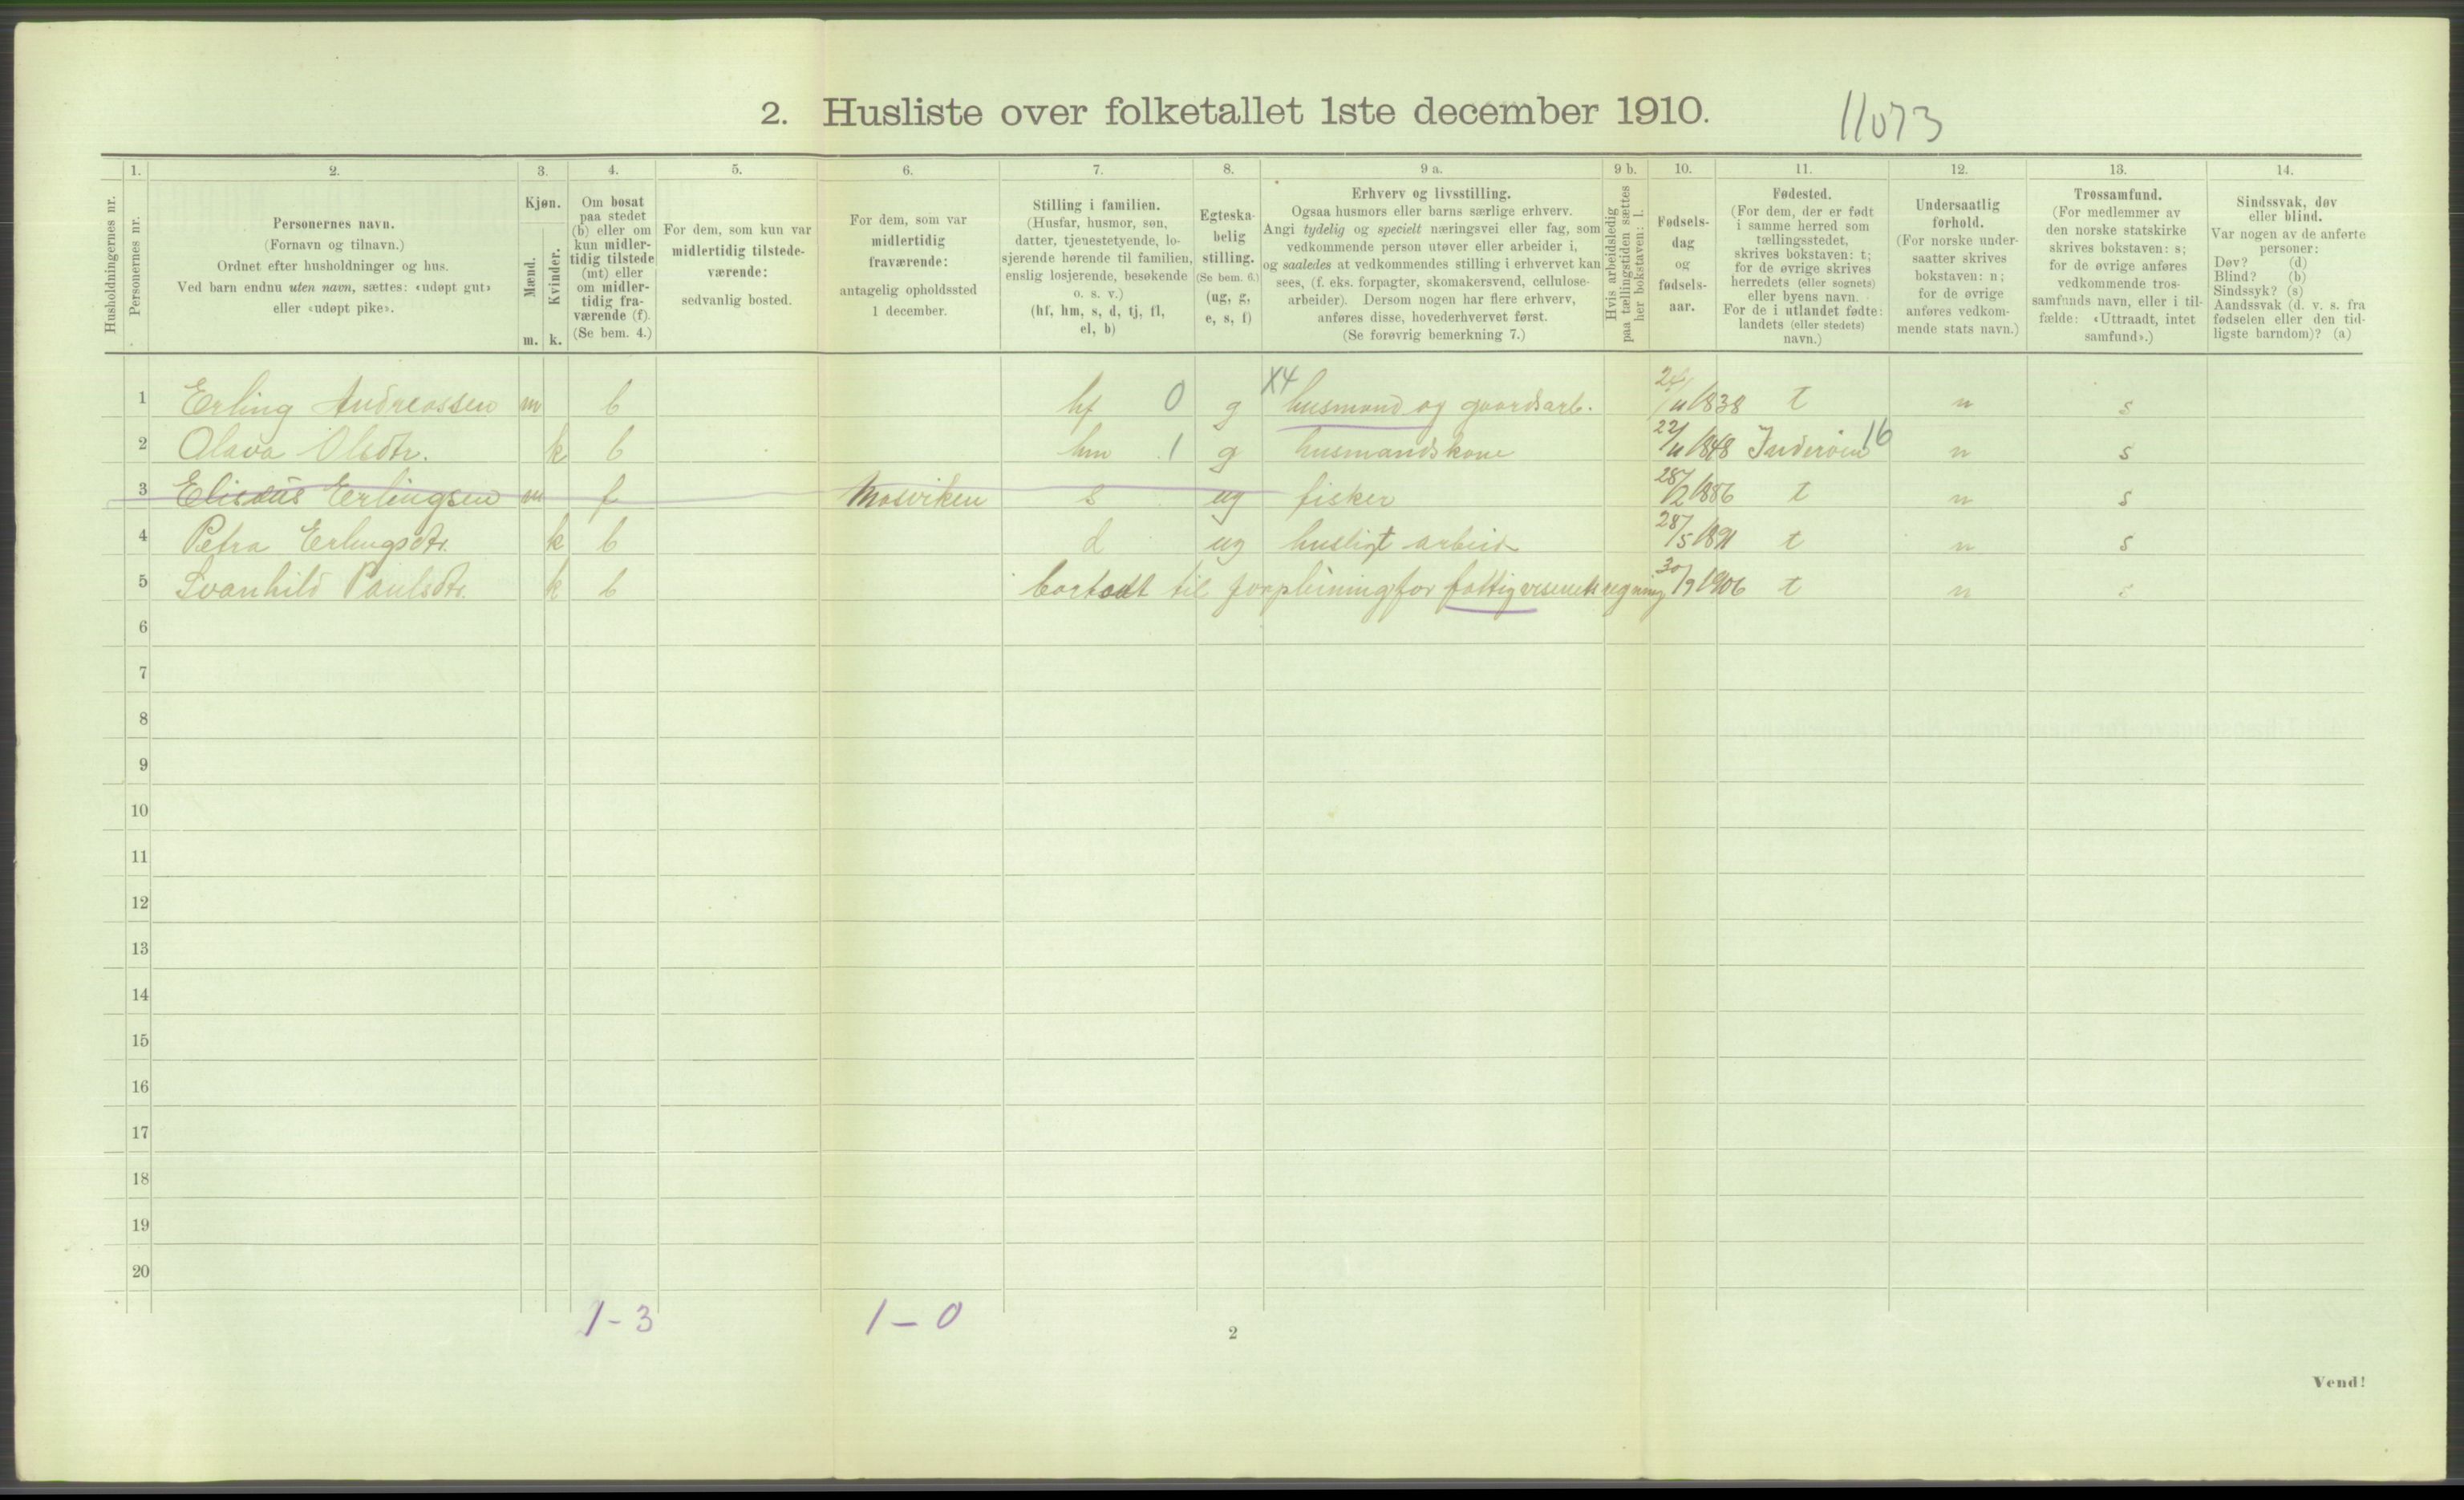 2. Husliste over folketallet 1ste december 1910.
11073
1. 2. 3. 4. 5. 6. 7. 8. 9 a. 9 b. 10. 11. 12. 13. 14.
Husholdningernes nr.
Personernes nr.
Personernes navn.
(Fornavn og tilnavn.)
Ordnet efter husholdninger og hus.
Ved barn endnu uten navn, sættes: «udøpt gut»
eller «udøpt pike».
Kjøn.
Mænd.
Kvinder.
m. k.
Om bosat
paa stedet
(b) eller om
kun midler-
tidig tilstede
(mt) eller
om midler-
tidig fra-
værende (f).
(Se bem. 4.)
For dem, som kun var
midlertidig tilstede-
værende:
sedvanlig bosted.
For dem, som var
midlertidig
fraværende:
antagelig opholdssted
1 december.
Stilling i familien.
(Husfar, husmor, søn,
datter, tjenestetyende, lo-
sjerende hørende til familien,
enslig losjerende, besøkende
o. s. v.)
(hf, hm, s, d, tj, fl,
el, b)
Egteska-
belig
stilling.
(Se bem. 6.)
(ug, g,
e, s, f)
Erhverv og livsstilling.
Ogsaa husmors eller barns særlige erhverv.
Angi tydelig og specielt næringsvei eller fag, som
vedkommende person utøver eller arbeider i,
og saaledes at vedkommendes stilling i erhvervet kan
sees, (f. eks. forpagter, skomakersvend, cellulose-
arbeider). Dersom nogen har flere erhverv,
anføres disse, hovederhvervet først.
(Se forøvrig bemerkning 7.)
Hvis arbeidsledig
paa tællingstiden sættes
her bokstaven: l.
Fødsels-
dag
og
fødsels-
aar.
Fødested.
(For dem, der er født
i samme herred som
tællingsstedet,
skrives bokstaven: t;
for de øvrige skrives
herredets (eller sognets)
eller byens navn.
For de i utlandet fødte:
landets (eller stedets)
navn.)
Undersaatlig
forhold.
(For norske under-
saatter skrives
bokstaven: n;
for de øvrige
anføres vedkom-
mende stats navn.)
Trossamfund.
(For medlemmer av
den norske statskirke
skrives bokstaven: s;
for de øvrige anføres
vedkommende tros-
samfunds navn, eller i til-
fælde: «Uttraadt, intet
samfund».)
Sindssvak, døv
eller blind.
Var nogen av de anførte
personer:
Døv? (d)
Blind? (b)
Sindssyk? (s)
Aandssvak (d. v. s. fra
fødselen eller den tid-
ligste barndom)? (a)
1 Erling Andreassen m b hf 0 g X4 husmand og gaardsarb. 24/11 1838 t n s
2 Olava Olsdtr. k b hm 1 g husmandskone 22/11 1848 Inderøen 16 n s
3 Elisæus Erlingsen m f Mosviken s ug fisker 28/2 1886 t n s
4 Petra Erlingsdtr. k b d ug husligt arbeid 28/5 1891 t n s
5 Svanhild Paulsdtr. k b bortsat til forpleining for fattigvesenets regning 30/9 1906 t n s
6
7
8
9
10
11
12
13
14
15
16
17
18
19
20
1-3 1-0
2
Vend!